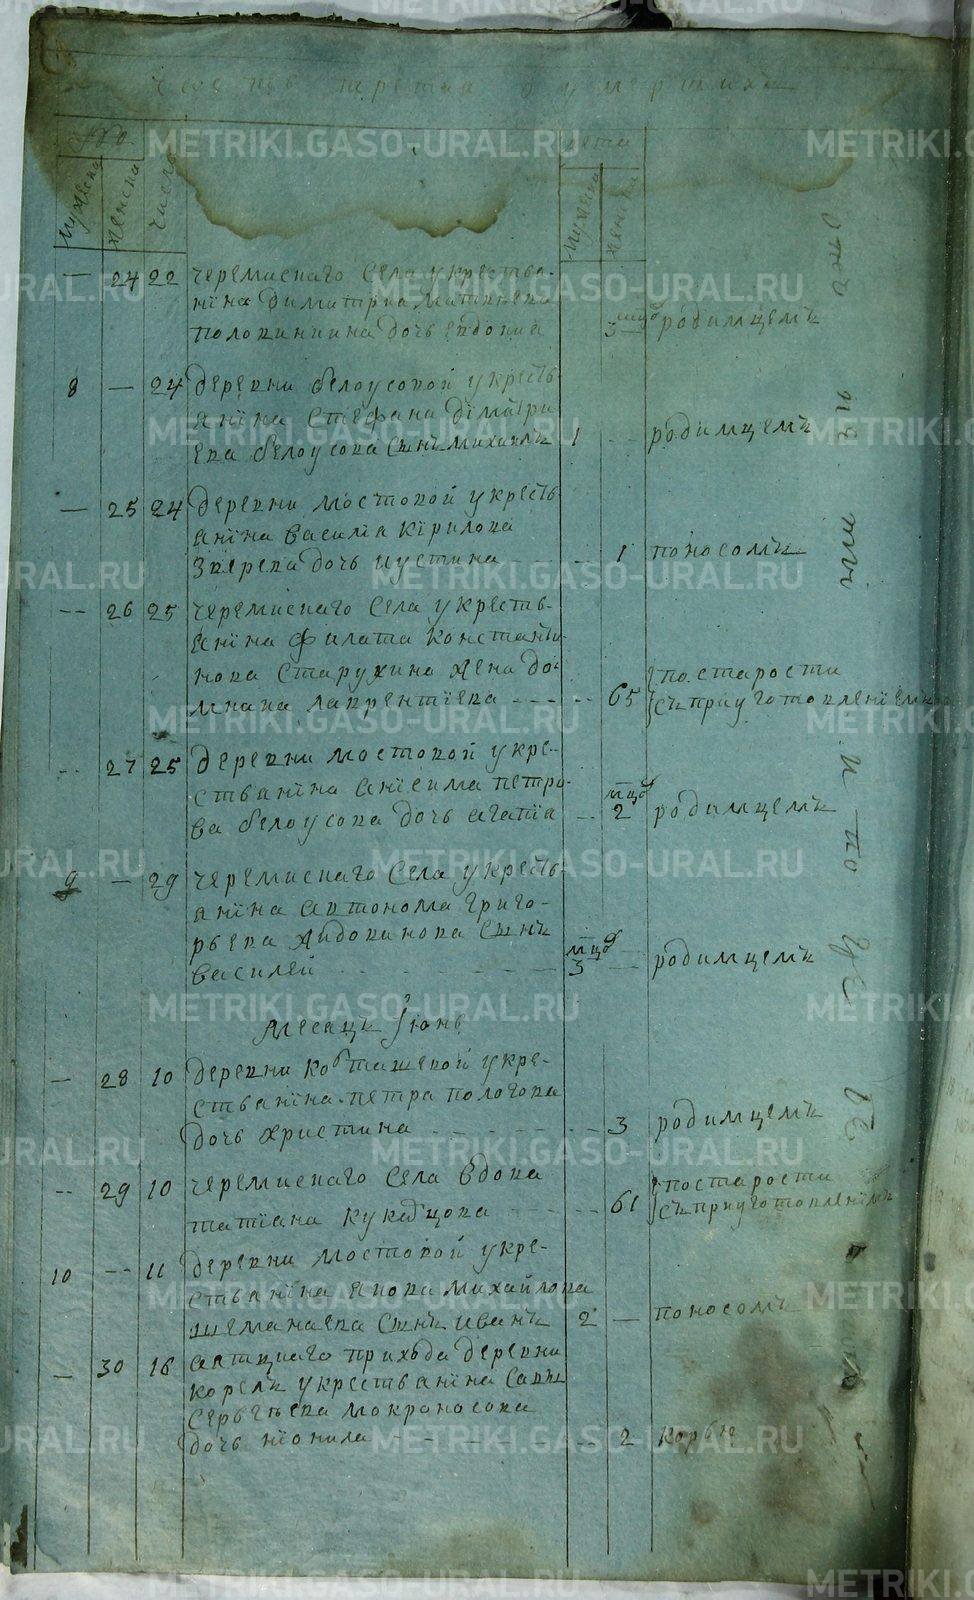 Часть третия о умерших
мужеска
женска
числъ
лета
мужеска
женска
— 24 22 черемискаго села у крестья-
нина Димитриа Матвѣева
Половинкина дочь Евдокиа мцов 3 родимцемъ
8 — 24 деревни Белоусовой у кресть
янина Стефана Димитри
ева Белоусова сынъ Михаилъ 1 -- родимцемъ
— 25 24 деревни Мостовой у кресть
янина Василиа Кирилова
Зверева дочь Иустина --- 1 поносомъ
-- 26 25 черемискаго села у кресть-
янина Филата Константи-
нова Старухина жена До-
мнана Лаврентіева ---- 65 по старости
съ приуготовленіемъ
-- 27 25 деревни Мостовой у кре-
стьянина Анісима Петро-
ва Белоусова дочь Агатіа -- мцов 2 родимцемъ
9 — 29 черемискаго села у кресть
янина Автонома Григо-
рьева Авдокимова сынъ
Василей мцов 3 — родимцемъ
Месяцъ Іюнь
— 28 10 деревни Ковташевой у кре-
стьянина Петра Пологова
дочь Христина ---- 3 родимцемъ
-- 29 10 черемискаго села вдова
Татіана ---- 61 по старости
съ приуготовленіемъ
10 -- 11 деревни Мостовой у кре-
стьянина Михайлова
Шеманаева сынъ Иванъ 2 — поносомъ
— 30 16 прихода деревни
Корелъ у крестьянина Савы
Сергѣева Мокроносова
дочь Неонила ---- 2 корью